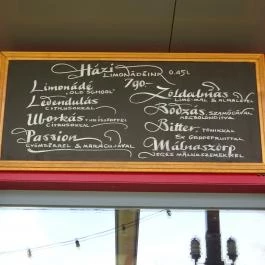 Házi
LIMONÁDÉINK 0.45L
790.-
Limonádé
"OLD SCHOOL"
Levendulás
CITRUSOKKAL
Uborkás
CITRUSOKKAL
Passion
GYÖMBÉRREL & MARACUJÁVAL
Zöldalmás
LIME-MAL & ALMALÉVEL
Bodzás, SZAMÓCÁVAL
MEGBOLONDÍTVA
Bitter, TONIKKAL
ÉS GRAPEFRUITTAL
Málnaszörp
JEGES MÁLNASZEMEKKEL